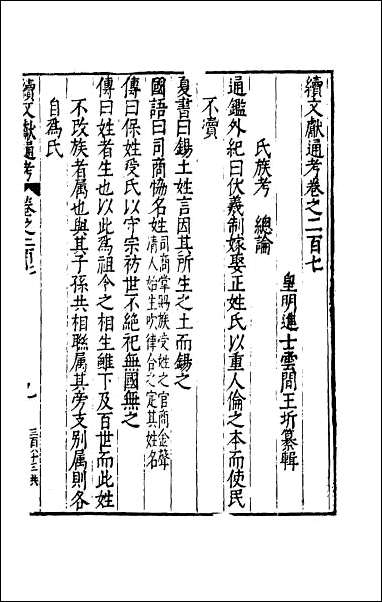 續文獻通考卷之二百七
皇明進士雲間王圻纂輯
氏族考　總論
通鑑外紀曰伏羲制嫁娶正姓氏以重人倫之本而使民
不瀆
夏書曰錫土姓言因其所生之土而錫之
國語曰司商協名姓司商掌賜族受姓之官商金聲
清人始生吹律合之定其姓名
傳曰保姓受氏以守宗祊世不絶祀無國無之
傳曰姓者生也以此爲祖令之相生雖下及百世而此姓
不改族者属也與其子孫共相聮属其旁支别属則各
自爲氏
續文獻通考
卷之二百七